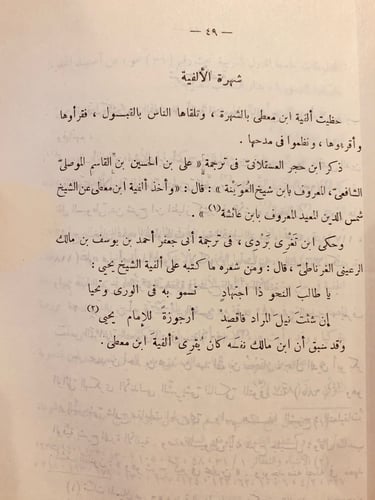 — ٤٩ —
شهرة الألفية
حظيت ألفية ابن معطى بالشهرة ، وتلقاها الناس بالقبول ، فقرأوها
وأقرءوها ، ونظموا فى مدحها .
ذكر ابن حجر العسقلانى فى ترجمة « على بن الحسين بن القاسم الموصلى
الشافعى ، المعروف بابن شيخ العوينة » : قال : « وأخذ ألفية ابن معطى عن الشيخ
شمس الدين المعيد المعروف بابن عائشة (١) » .
وحكى ابن تغرى بردى ، فى ترجمة أبى جعفر أحمد بن يوسف بن مالك
الرعينى الغرناطى ، قال : ومن شعره ما كتبه على ألفية الشيخ يحيى :
يا طالب النحو ذا اجتهاد تسمو به فى الورى وتحيا
إن شئت نيل المراد فاقصد أرجوزة للإمام يحيى (٢)
وقد سبق أن ابن مالك نفسه كان يقرئ ألفية ابن معطى .